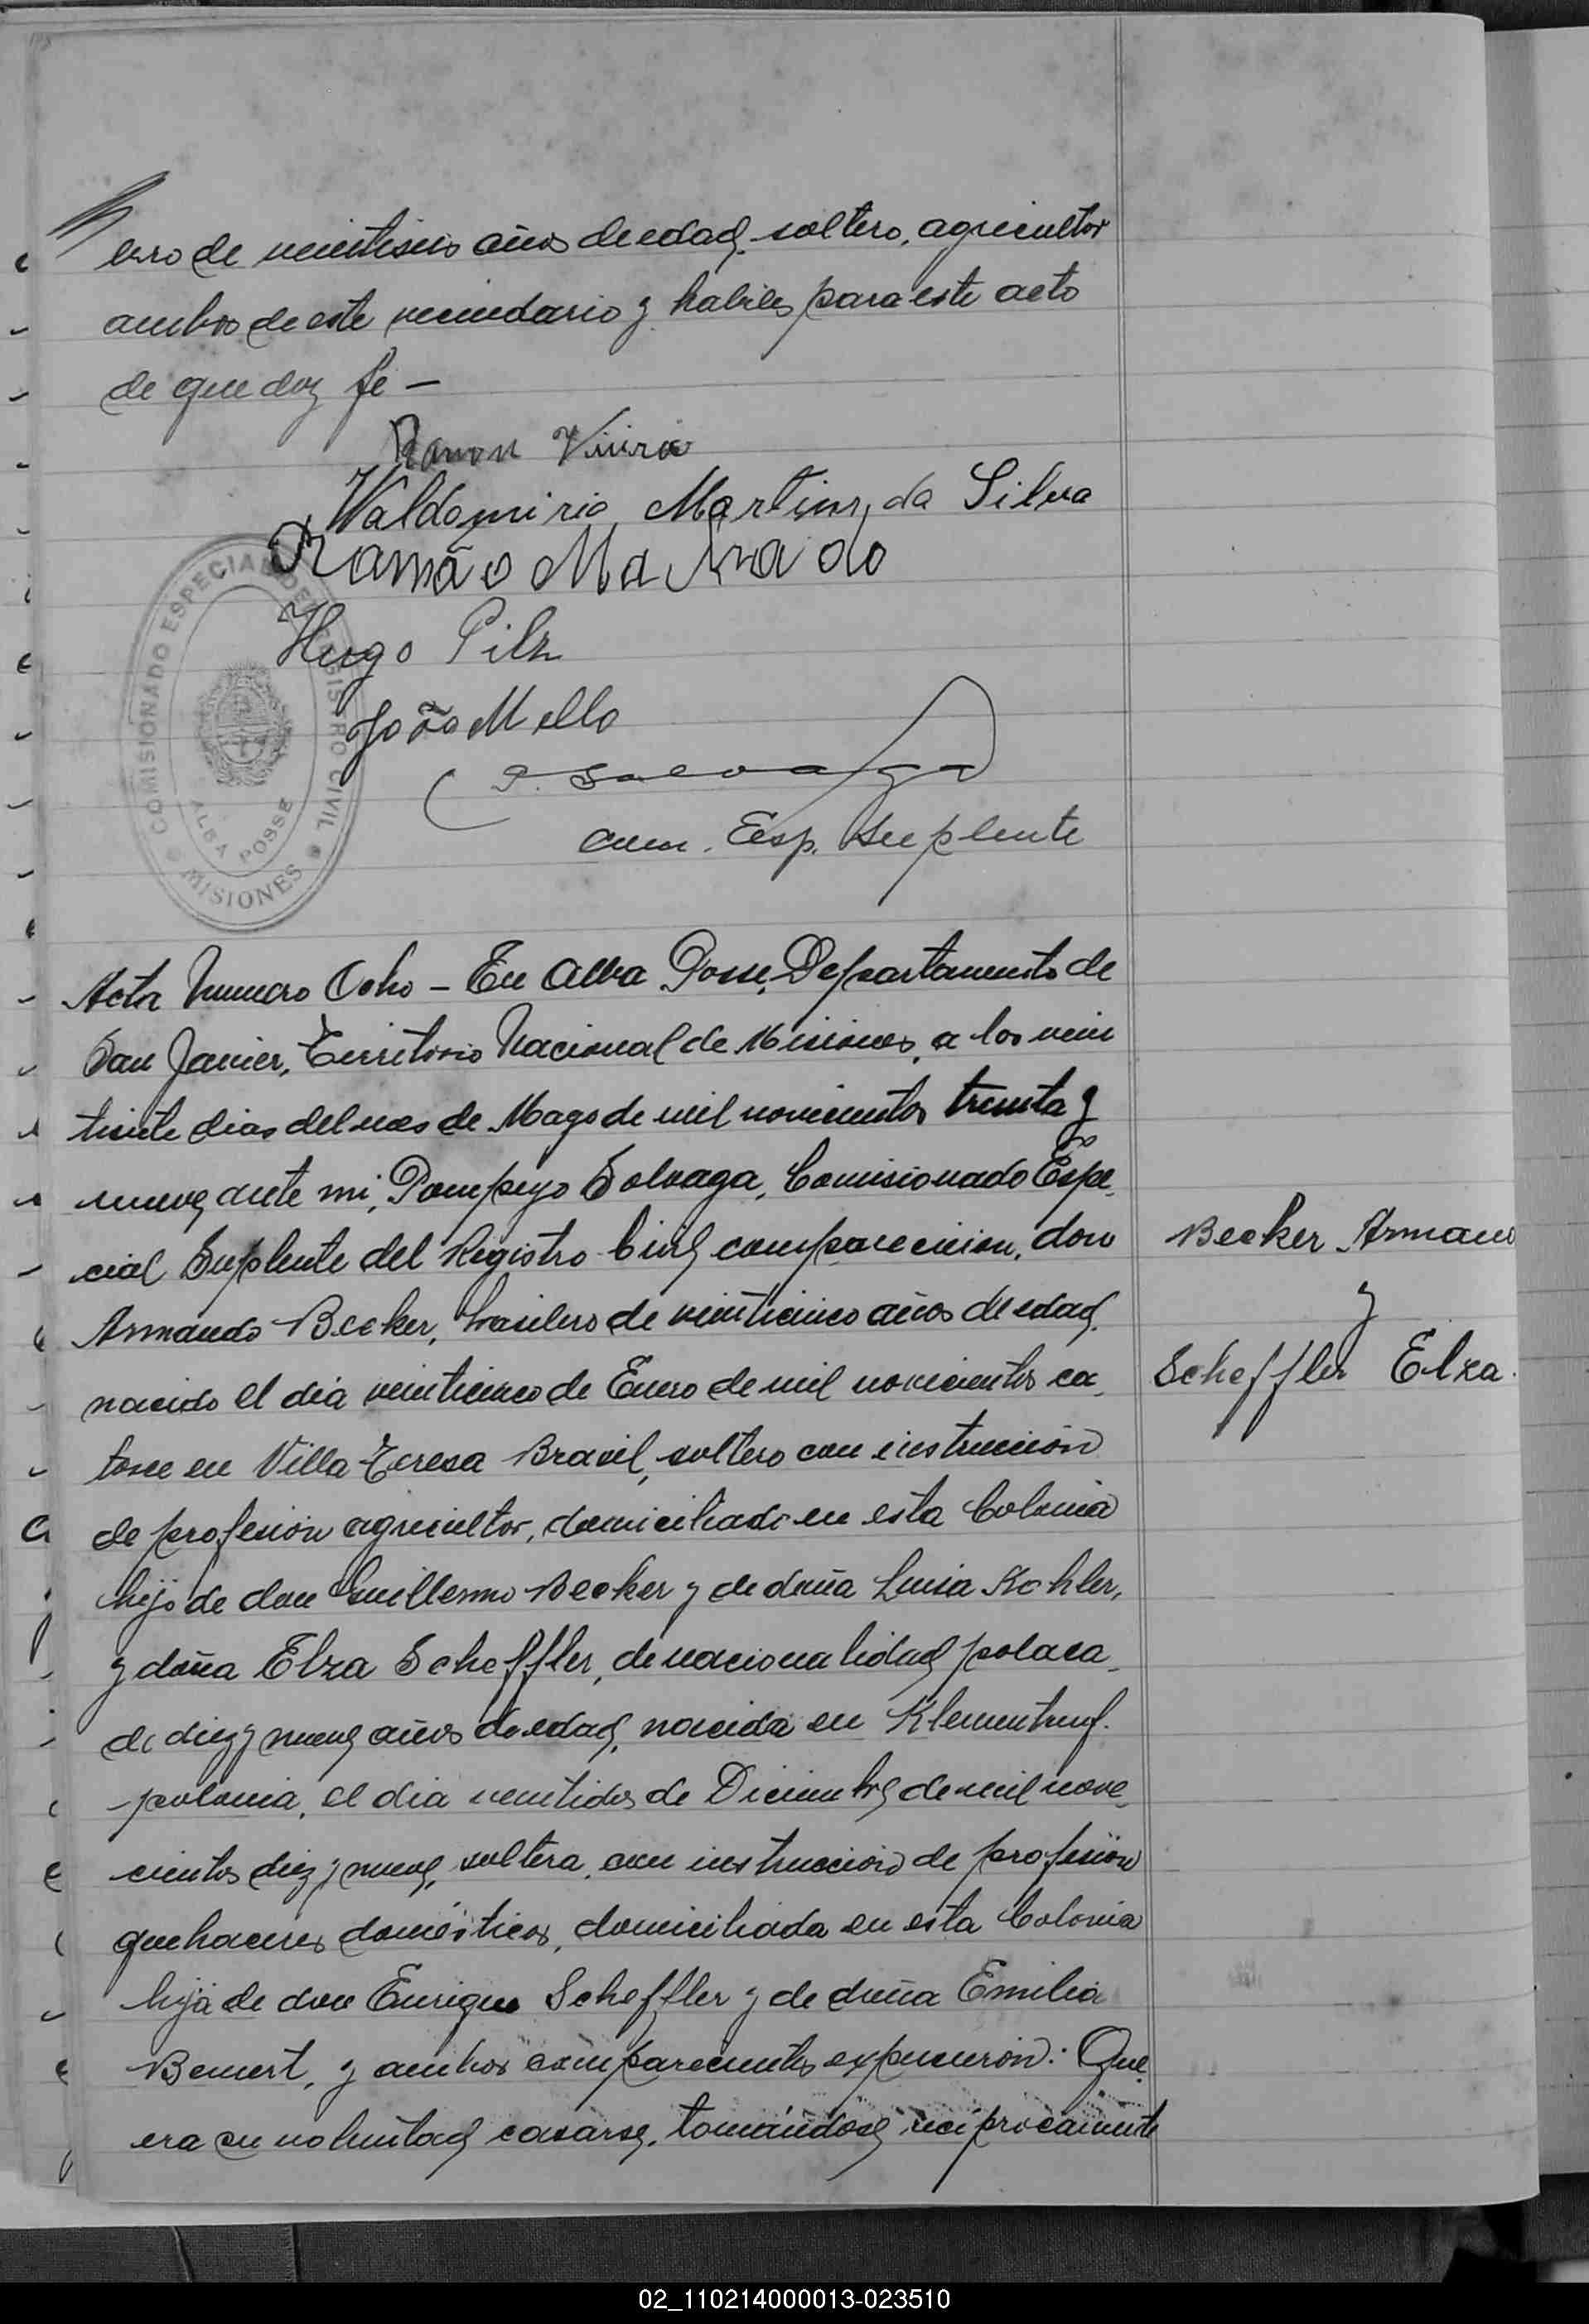 lero de veintiseis años de edad, soltero, agricultor
ambos de este vecindario y habiles para este acto
de que doy fe —
Ramon Viiria
Waldomirio Martins da Silva
Ramão Machado
Hugo Pilz
João Mello
P. Solvaga
Com. Esp. Suplente
COMISIONADO ESPECIAL DEL REGISTRO CIVIL
ALBA POSSE
MISIONES
Acta Numero Ocho – En Alba Posse, Departamento de
San Javier, Territorio Nacional de Misiones, a los vein
tisiete dias del mes de Mayo de mil novecientos treinta y
nueve, ante mi, Pompeyo Solvaga, Comisionado Espe
cial Suplente del Registro Civil, comparecieron, don
Armando Becker, brasilero de veinticinco años de edad,
nacido el dia veinticinco de Enero de mil novecientos ca
torce en Villa Teresa Brasil, soltero con instrucción
de profesión agricultor, domiciliado en esta Colonia
hijo de don Guillermo Becker y de doña Luisa Kohler,
y doña Elza Scheffler, de nacionalidad polaca,
de diez y nueve años de edad, nacida en
polonia, el dia veintidos de Diciembre de mil nove
cientos diez y nueve, soltera, con instrucción de profesión
quehaceres domésticos, domiciliada en esta Colonia
hija de don Enrique Scheffler y de doña Emilia
Bemert, y ambos comparecientes expusieron: Que
era su voluntad casarse, tomándose reciprocamente
Becker Armando
y
Scheffler Elza.
02_110214000013-023510